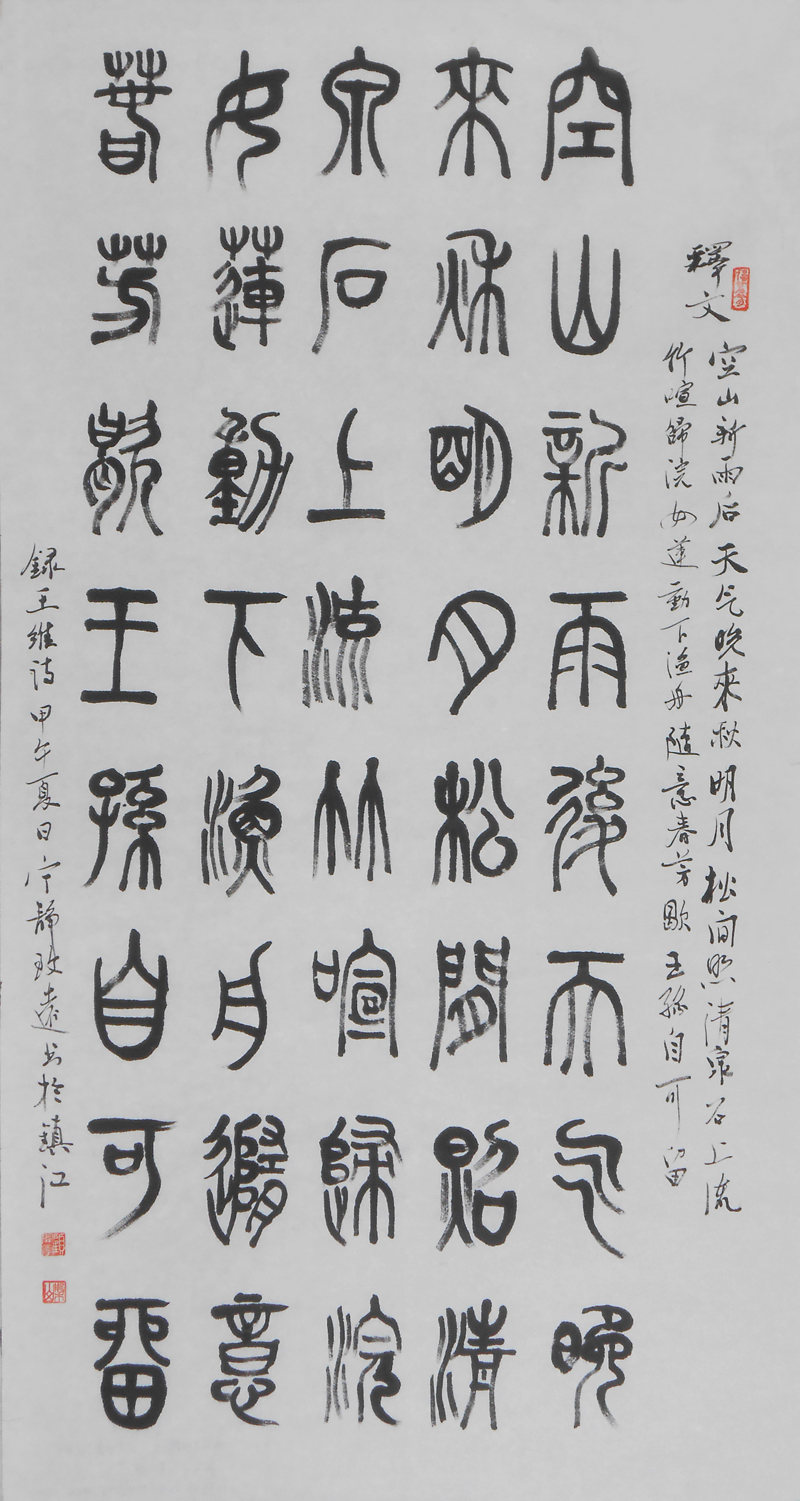 釋文 空山新雨后天气晚來秋明月松间照清泉石上流
竹喧歸浣女蓮動下渔舟隨意春芳歇王孫自可留
空山新雨後天气晚
來秋明月松間照清
泉石上流竹喧歸浣
女蓮動下漁舟隨意
春芳歇王孫自可留
録王維诗甲午夏日宁静致遠书於鎮江